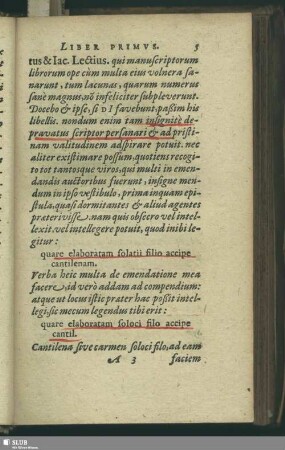 LIBER PRIMVS. 5
tus & Iac. Lectius. qui manuscriptorum
librorum ope cùm multa eius volnera sa-
narunt, tum lacunas, quarum numerus
sanè magnus, nō infeliciter suppleverunt.
Docebo & ipse, si DI favebunt, paßim his
libellis. nondum enim tam insignitè de-
pravatus scriptor persanari & ad pristi-
nam valitudinem adspirare potuit. nec
aliter existimare possum, quotiens recogi-
to tot tantosque viros, qui multi in emen-
dandis auctoribus fuerunt, insigne men-
dum in ipso vestibulo, prima inquam epi-
stula, quasi dormitantes & aliud agentes
præterivisse. nam quis obsecro vel intel-
lexit. vel intellegere potuit, quod inibi le-
gitur:
quare elaboratam solatii filio accipe
cantilenam.
Verba heic multa de emendatione mea
facere, id verò addam ad compendium:
atque ut locus istic prater hac poßit intel-
legi, sic mecum legendus tibi erit:
quare elaboratam soloci filo accipe
cantil.
Cantilena sive carmen soloci filo, ad eam
A 3 faciem
SLUB